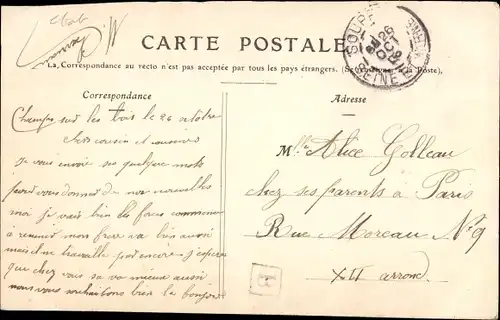 CARTE POSTALE
La Correspondance au recto n'est pas acceptée par tous les pays étrangers. (Se renseigner à la Poste).
Correspondance
Adresse
SOUPP
26
OCT
SEINE
Champs sur les bois le 26 octobre
chers cousin et cousine
Je vous envoie ses quelque mots
pour vous donner de nos nouvelles
moi je vais bien les forces commence
à revenir mon frere va bien aussi
mais il ne travaille pas encore j'espère
que chez vous sa va mieux aussi
nous vous souhaitons bien le bonjour
Mlle Alice Golleau
chez ses parents à Paris
Rue Moreau N° 9
XII arrond
B